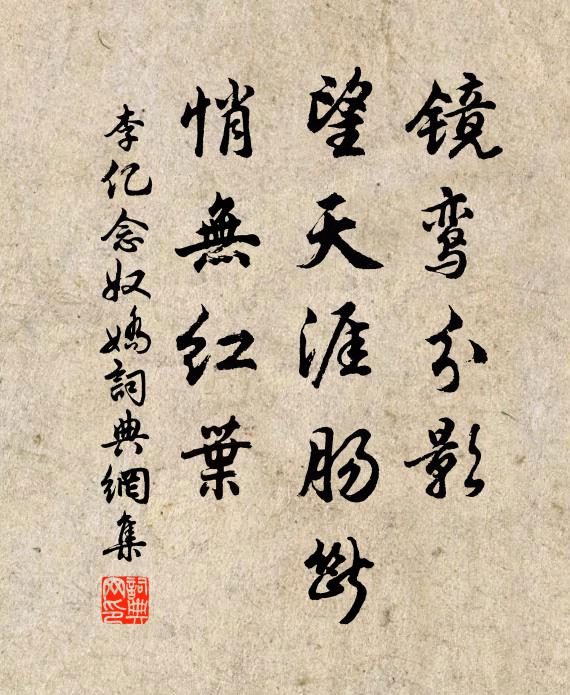 镜鸾分影
望天涯肠断
悄無红葉
李亿念奴嬌詞典網集
詞典网印